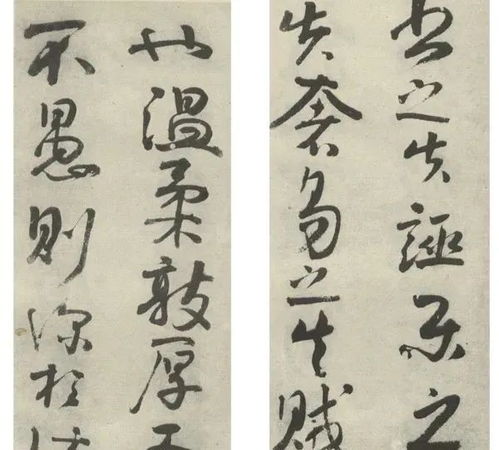 書之失誣樂之
失奢易之失賊
也温柔敦厚而
不愚則深於